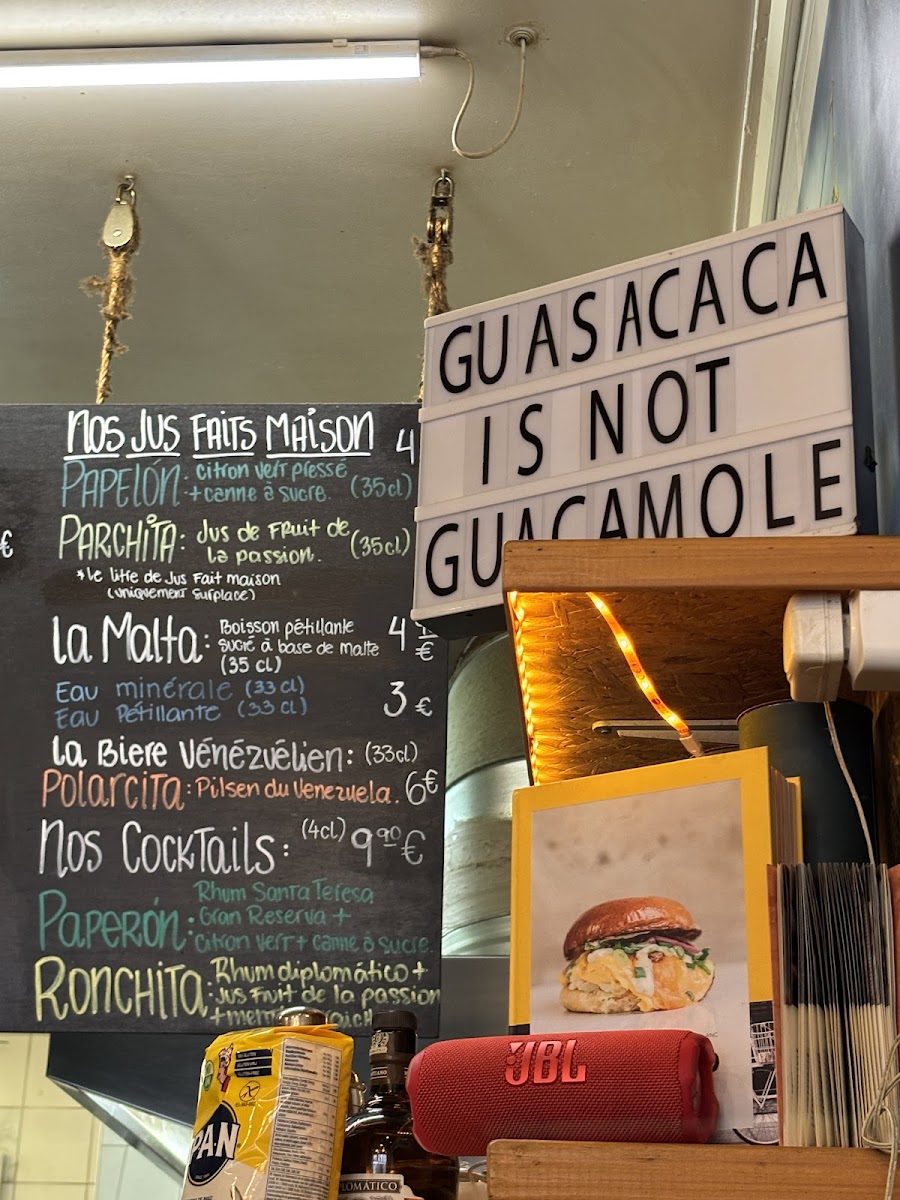 GUASACACA
IS NOT
GUACAMOLE
NOS JUS FAITS MAISON 4
PAPELÓN: citron vert pressé
+ canne à sucre. (35cl)
€
PARCHITA: Jus de Fruit de
la passion. (35cl)
*le litre de Jus Fait maison
(uniquement surplace)
la Malta: Boisson pétillante
sucré à base de malte
(35 cl)
4 €
Eau minérale (33 cl)
Eau Pétillante (33 cl)
3 €
la Biere Vénézuélien: (33cl)
POLARCITA: Pilsen du Venezuela. 6€
NOS COCKTAILS: (4cl) 9,90 €
PAPERÓN: Rhum Santa Teresa
Gran Reserva +
citron vert + canne à sucre.
RONCHITA: Rhum diplomático +
Jus Fruit de la passion
JBL
PAN